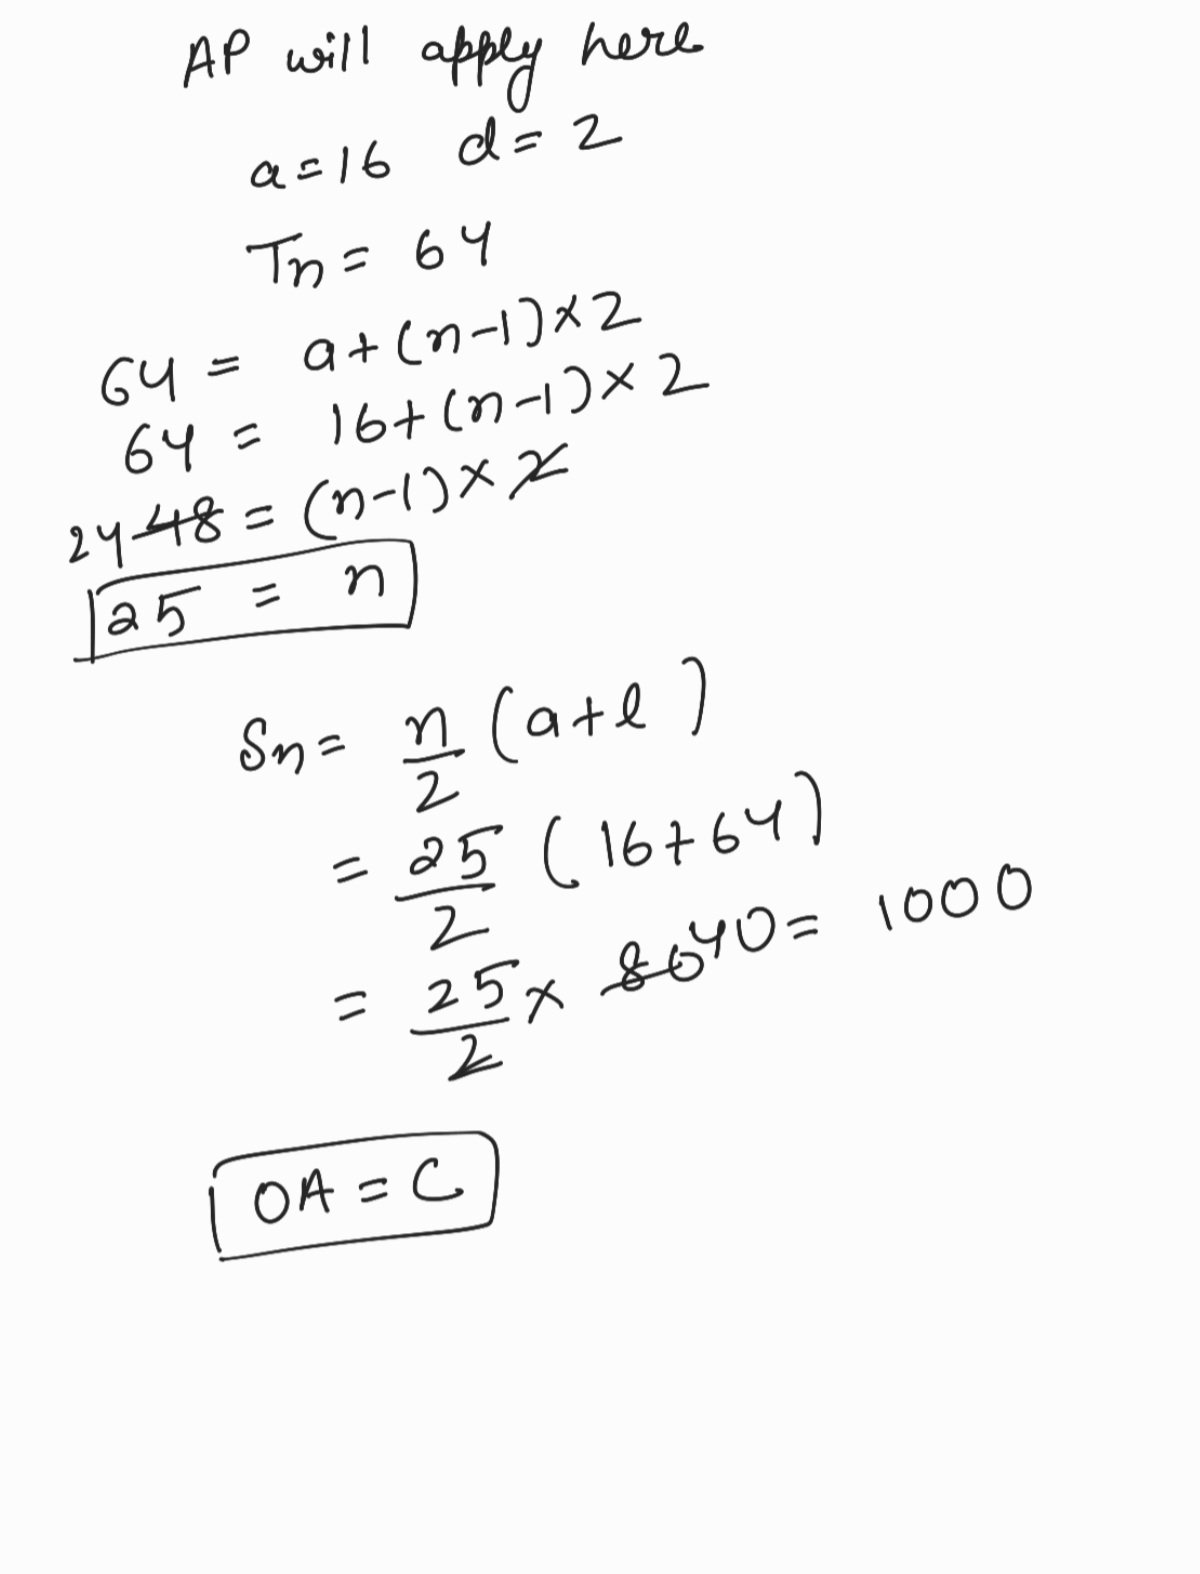 AP will apply here
a=16 d=2
Tn= 64
64 = a+(n-1)×2
64 = 16+(n-1)×2
24 48 = (n-1)×2
25 = n
Sn= n/2 (a+l)
= 25/2 (16+64)
= 25/2 × 80 40= 1000
OA = C